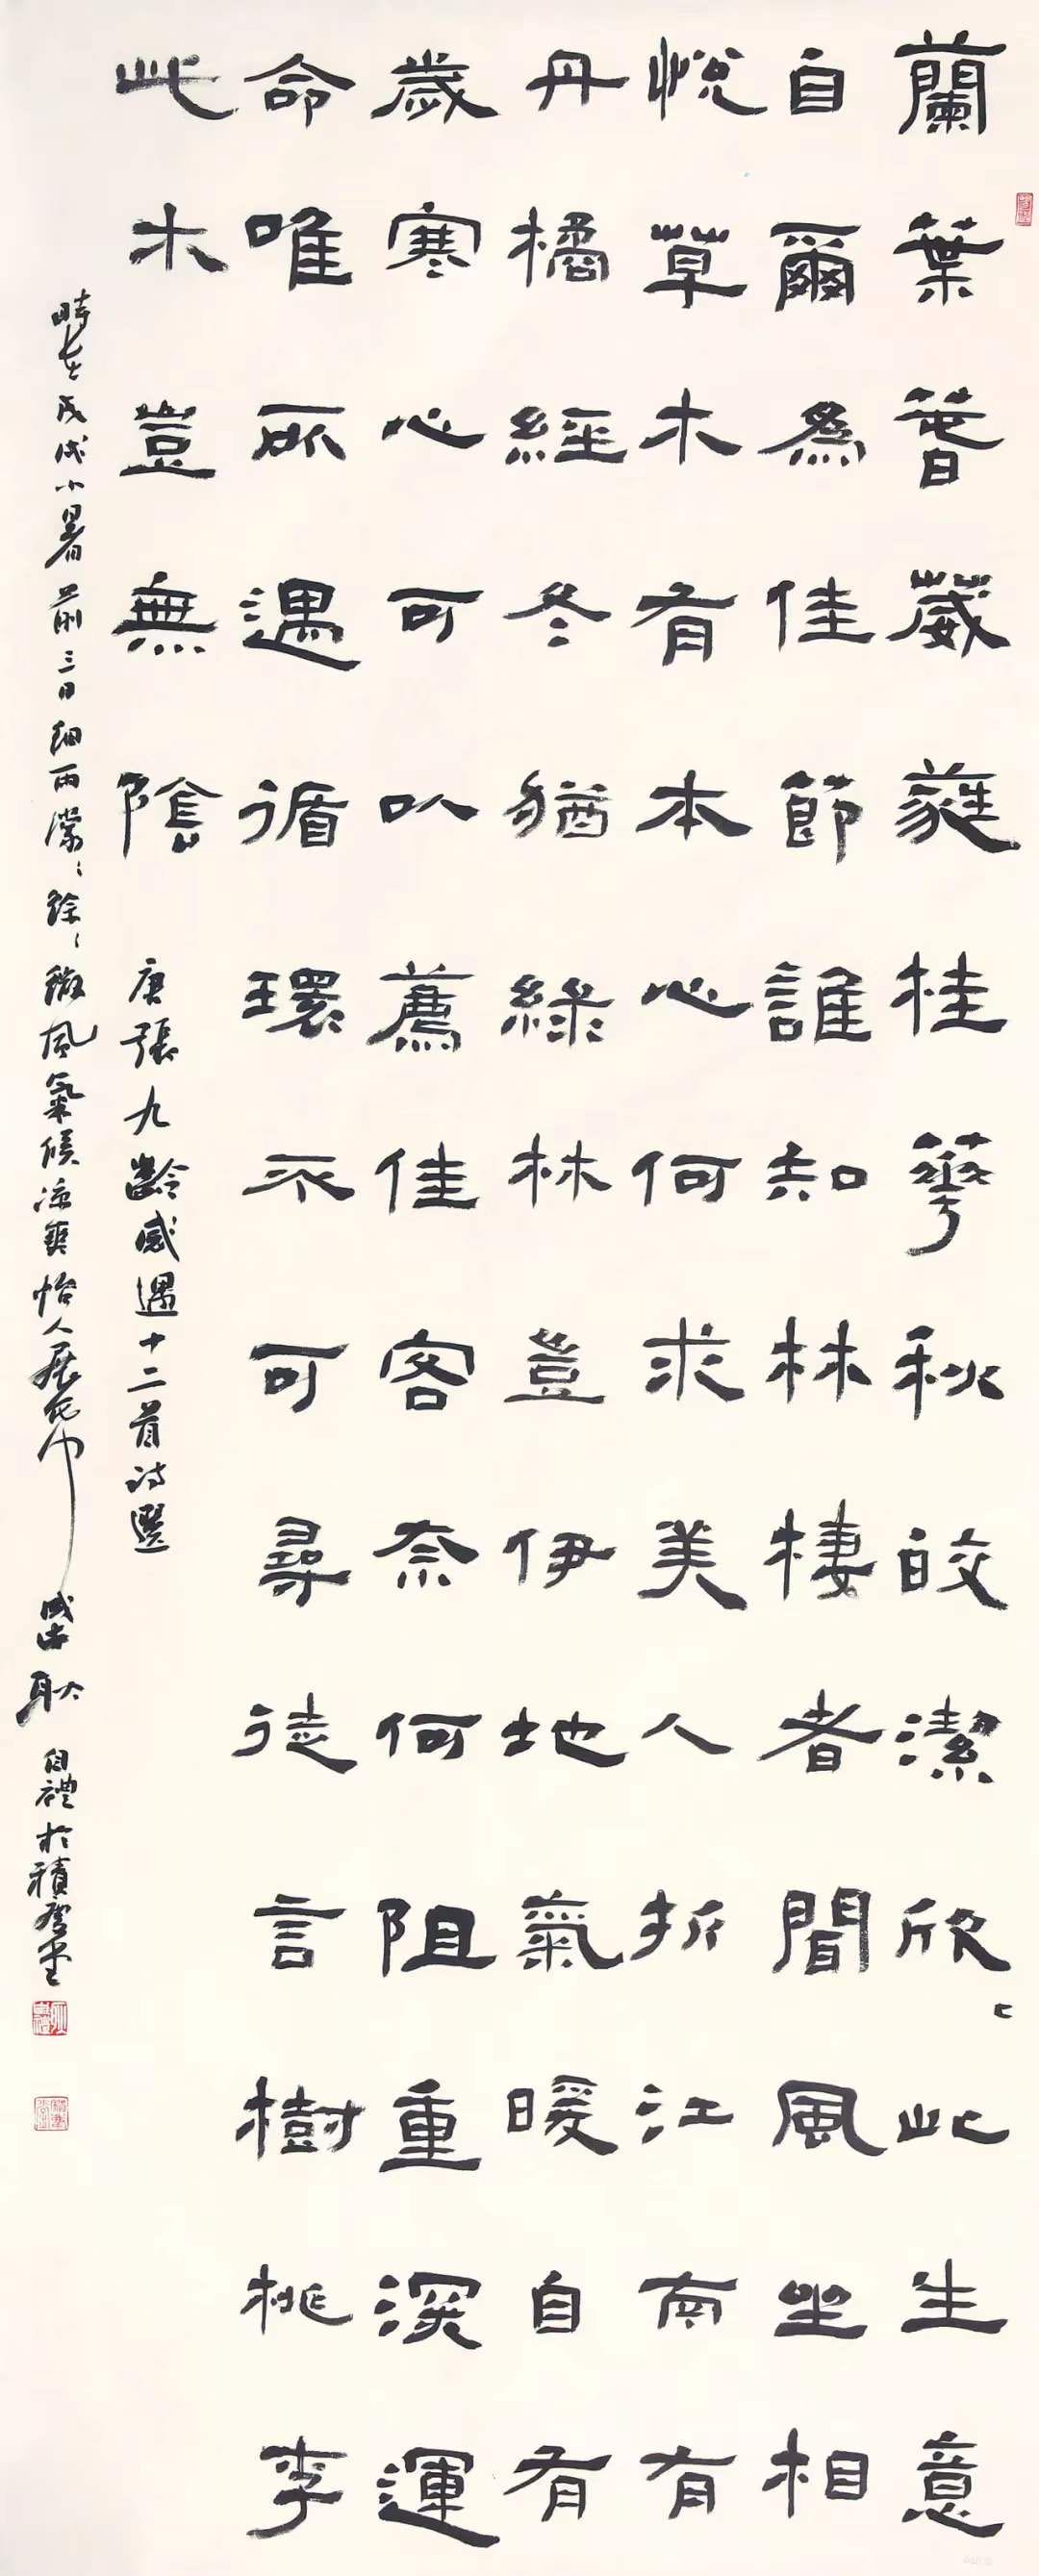 蘭葉萅葳蕤桂華秋皎潔欣〻此生意
自爾為佳節誰知林棲者聞風坐相
悅草木有本心何求美人折江南有
丹橘經冬猶綠林豈伊地氣暖自有
歲寒心可以薦佳客奈何阻重深運
命唯所遇循環不可尋徒言樹桃李
此木豈無陰 唐張九齡感遇十二首詩選
時在戊戌小暑前三日細雨濛〻徐〻微風氣候涼爽怡人展紙 耿自禮於積慶堂